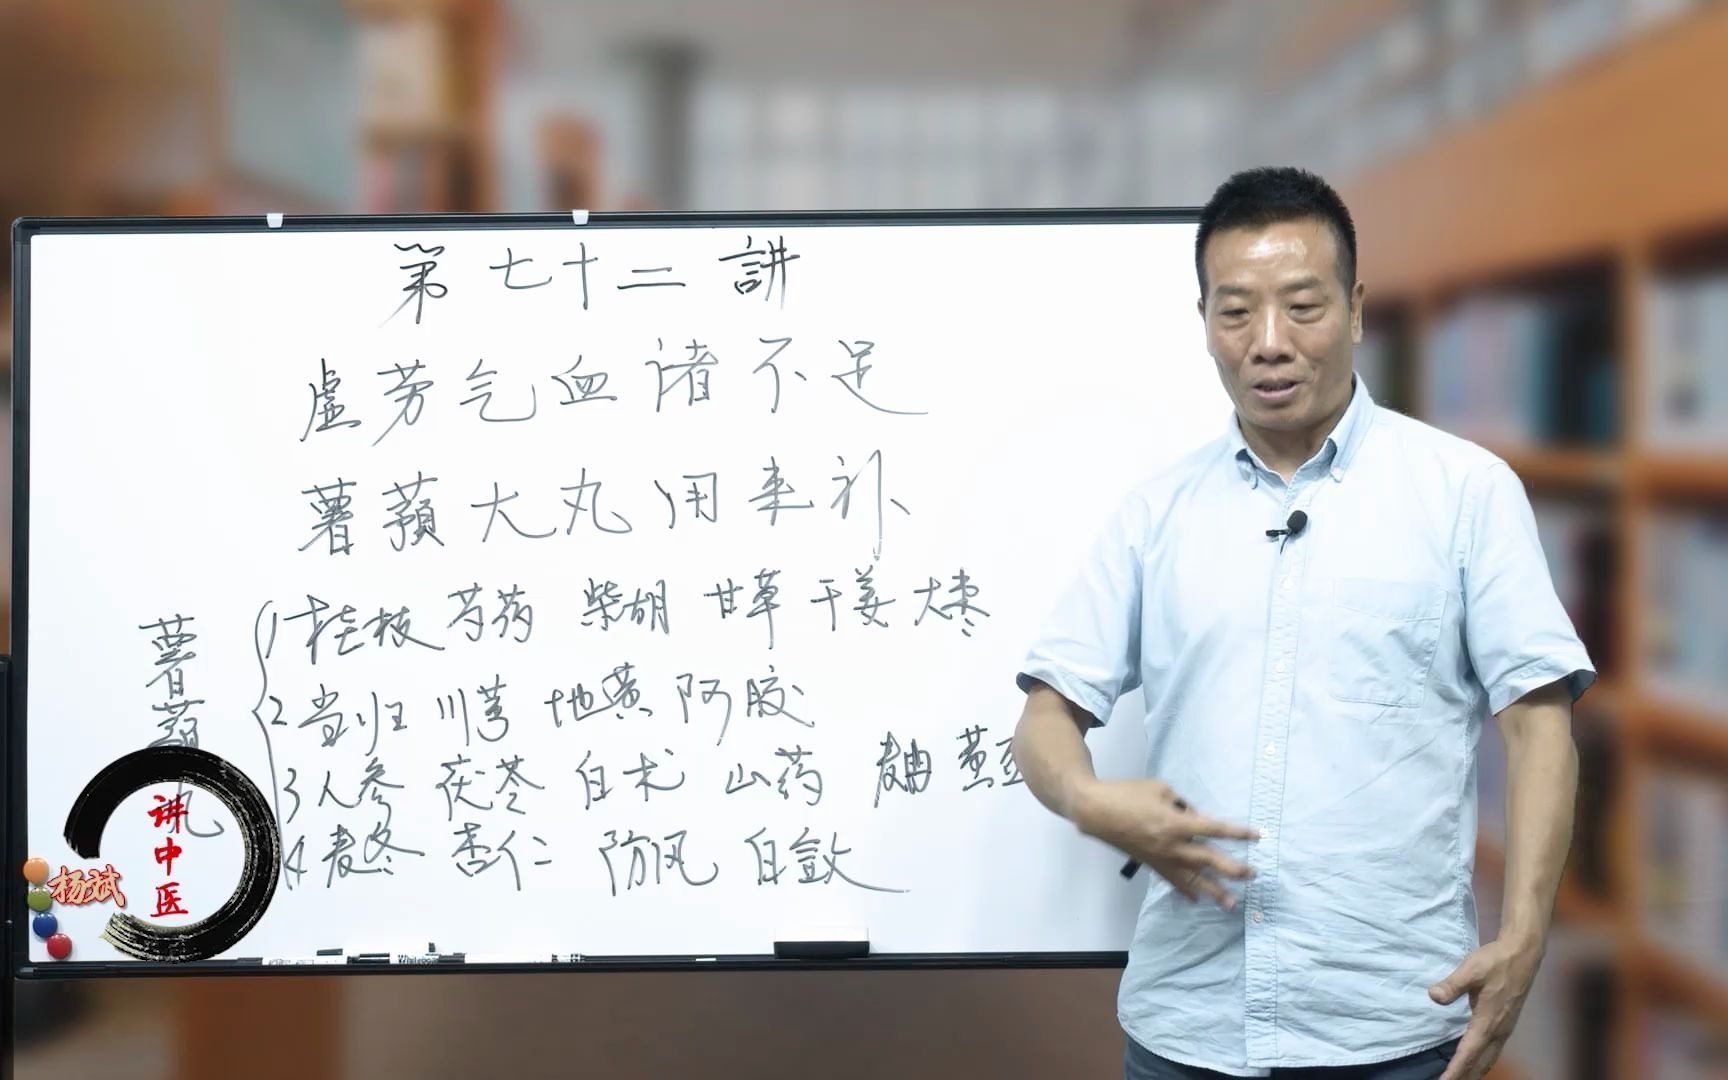 第七十二講
虚劳气血诸不足
薯蕷大丸用来补
薯蕷丸
1 桂枝 芍药 柴胡 甘草 干姜 大枣
2 当归 川芎 地黄 阿胶
3 人参 茯苓 白术 山药 麦曲 黄豆
4 麦冬 杏仁 防风 白蔹
讲中医
杨斌